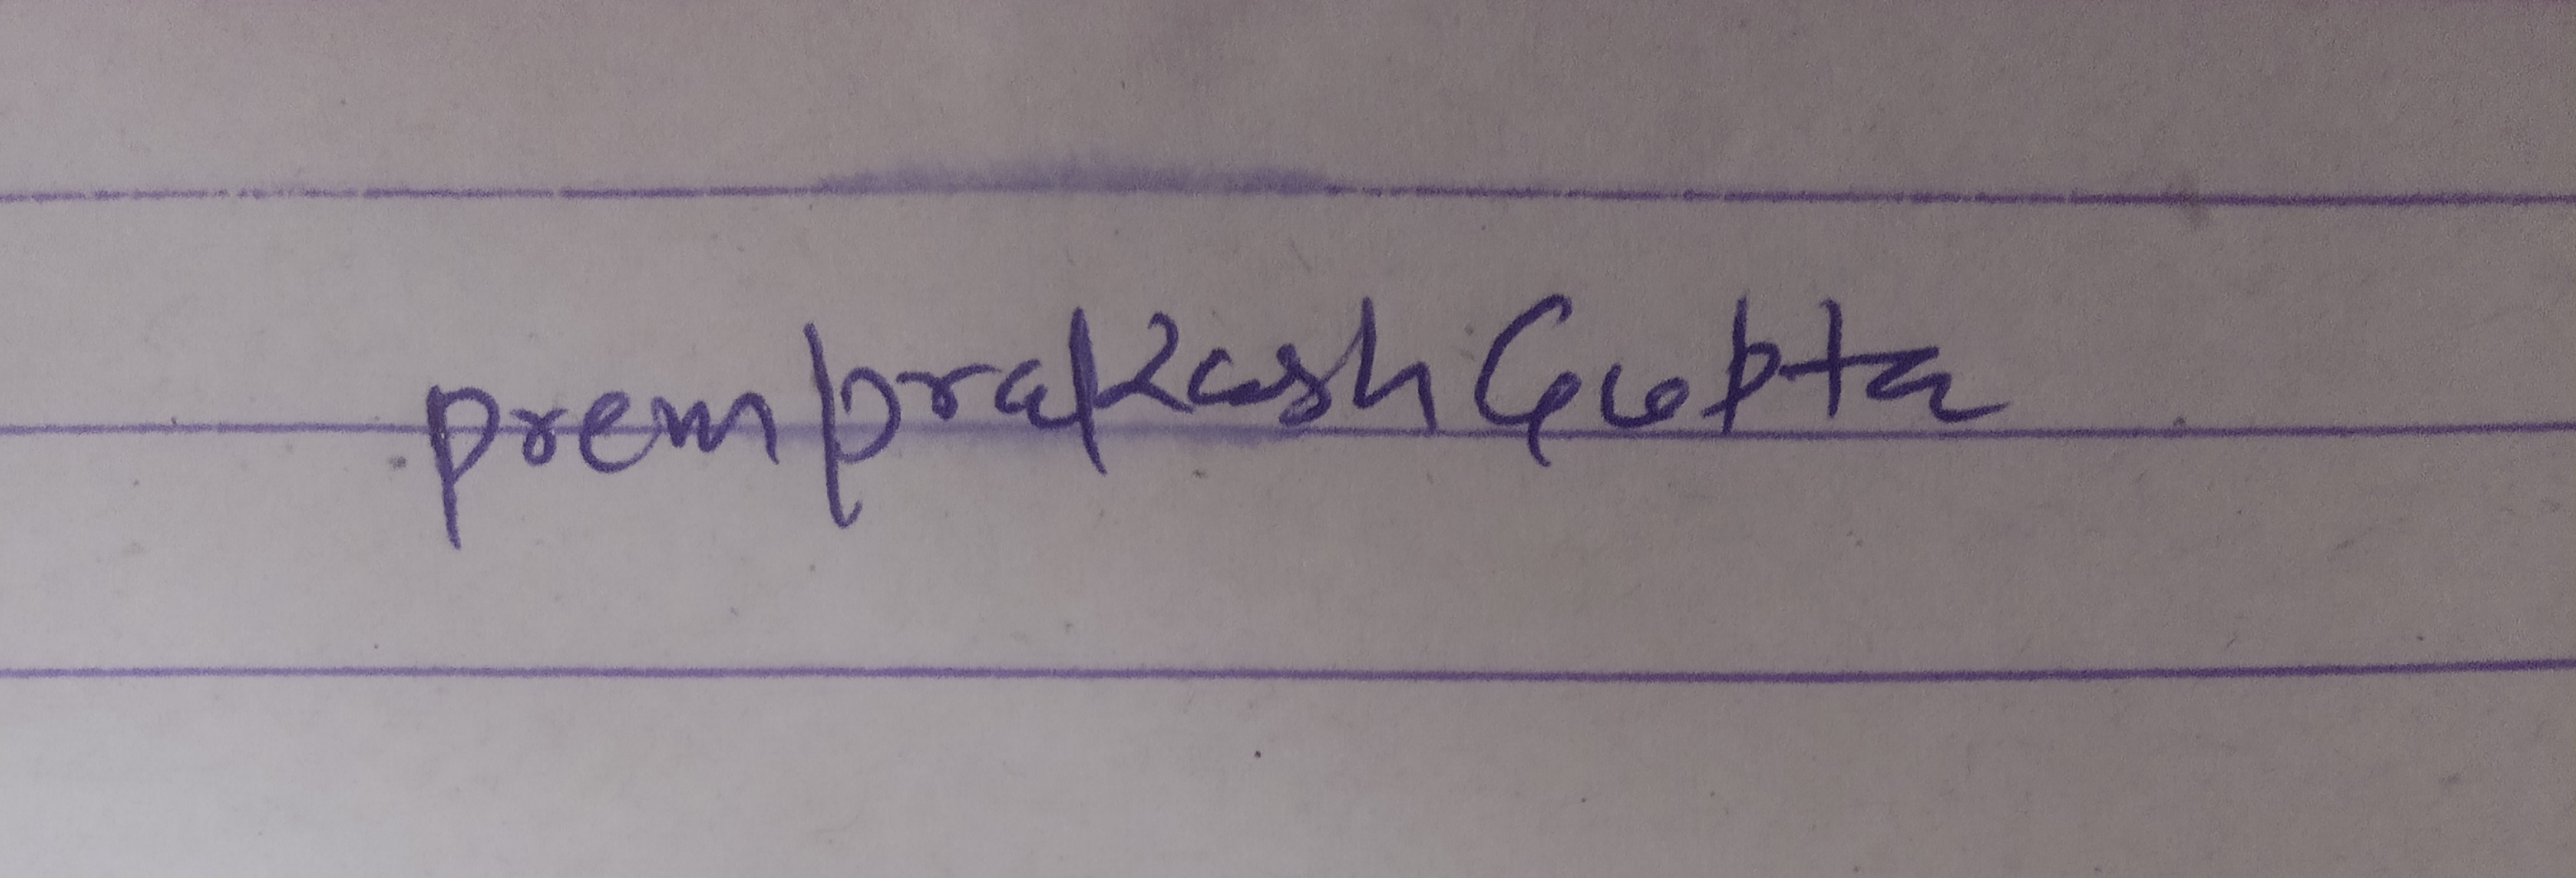 prem prakash Gupta